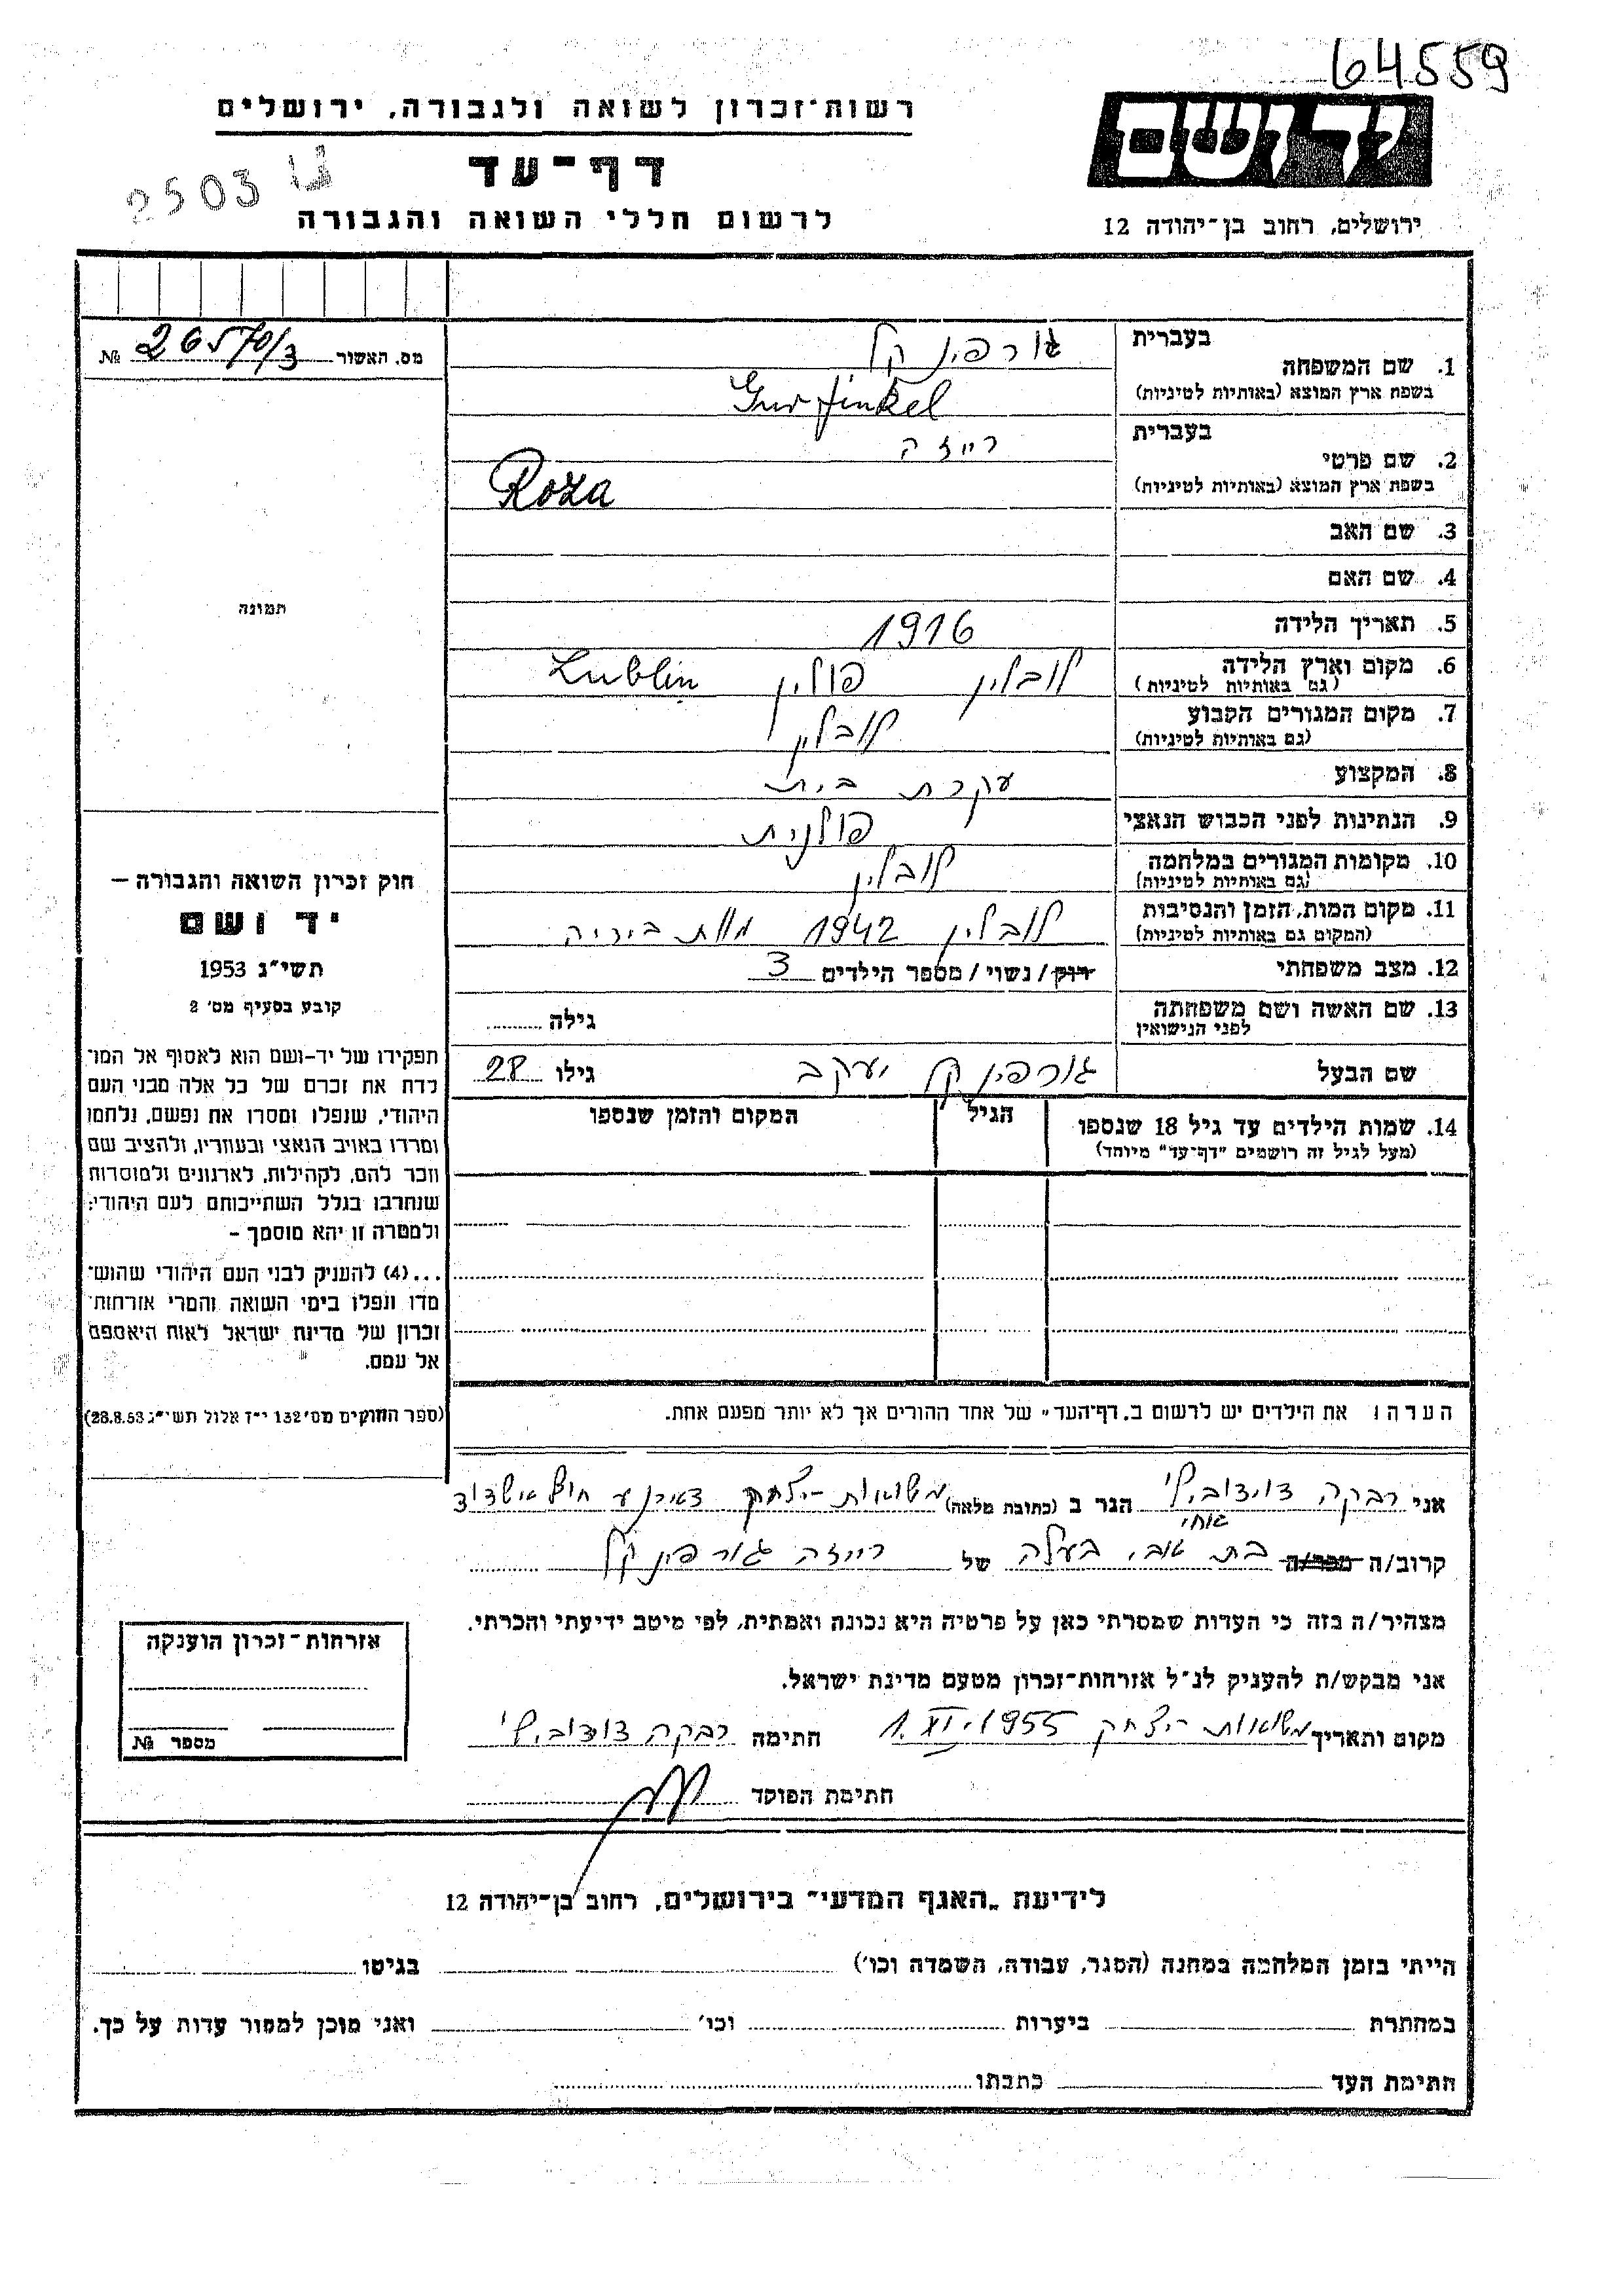 64559
רשות-זכרון לשואה ולגבורה, ירושלים
יד ושם
דף-עד
2503
לרשום חללי השואה והגבורה
ירושלים, רחוב בן-יהודה 12
מס. האשור 26570/3 №
בעברית
1. שם המשפחה
גורפינקל
בשפת ארץ המוצא (באותיות לטיניות)
Gurfinkel
בעברית
2. שם פרטי
רייזה
בשפת ארץ המוצא (באותיות לטיניות)
Roza
3. שם האב
4. שם האם
תמונה
5. תאריך הלידה 1916
6. מקום וארץ הלידה לובלין פולין Lublin
(גם באותיות לטיניות)
7. מקום המגורים הקבוע לובלין
(גם באותיות לטיניות)
8. המקצוע עקרת בית
9. הנתינות לפני הכבוש הנאצי פולנית
10. מקומות המגורים במלחמה לובלין
(גם באותיות לטיניות)
11. מקום המות, הזמן והנסיבות לובלין 1942 מות ביריה
(המקום גם באותיות לטיניות)
12. מצב משפחתי רוק/נשוי/מספר הילדים 3
13. שם האשה ושם משפחתה גילה
לפני הנישואין
שם הבעל גורפינקל יעקב גילו 28
14. שמות הילדים עד גיל 18 שנספו הגיל המקום והזמן שנספו
(מעל לגיל זה רושמים "דף-עד" מיוחד)
חוק זכרון השואה והגבורה –
יד ושם
תשי"ג 1953
קובע בסעיף מס' 2
תפקידו של יד-ושם הוא לאסוף אל המו־
לדת את זכרם של כל אלה מבני העם
היהודי, שנפלו ומסרו את נפשם, נלחמו
ומרדו באויב הנאצי ובעוזריו, ולהציב שם
וזכר להם, לקהילות, לארגונים ולמוסדות
שנחרבו בגלל השתייכותם לעם היהודי;
ולמטרה זו יהא מוסמך –
...(4) להעניק לבני העם היהודי שהוש־
מדו ונפלו בימי השואה והמרי אזרחות־
זכרון של מדינת ישראל לאות היאספם
אל עמם.
(ספר החוקים מס' 132 י"ז אלול תשי"ג 28.8.53)
הערה: את הילדים יש לרשום ב„דף-העד" של אחד ההורים אך לא יותר מפעם אחת.
אני רבקה דוידוביץ' הגר ב (כתובת מלאה) משואות יצחק ד"נ חוף אשדוד
קרוב/ה מכר/ה בת אחי בעלה של רייזה גורפינקל
מצהיר/ה בזה כי העדות שמסרתי כאן על פרטיה היא נכונה ואמתית, לפי מיטב ידיעתי והכרתי.
אני מבקש/ת להעניק לנ"ל אזרחות-זכרון מטעם מדינת ישראל.
מקום ותאריך משואות יצחק 1.XI.1955 חתימה רבקה דוידוביץ'
חתימת הפוקד
אזרחות-זכרון הוענקה
מספר №
לידיעת „האגף המדעי" בירושלים, רחוב בן-יהודה 12
הייתי בזמן המלחמה במחנה (הסגר, עבודה, השמדה וכו') בגיטו
במחתרת ביערות וכו' ואני מוכן למסור עדות על כך.
חתימת העד כתבתו